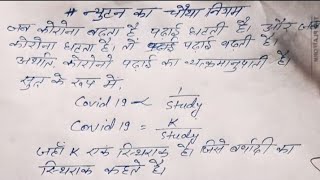 # न्युटन का चौथा नियम
जब कोरोना बढता है पढाई घटती है। और जब
कोरोना घटता है। तो पढाई बढती है।
अर्थात कोरोनो पढाई का व्युत्क्रमानुपाती है।
सुत्र के रूप में.
Covid 19 ∝ 1/study
Covid 19 = K/study
जहाँ K एक स्थिरांक है। जिसे बर्बादी का
स्थिरांक कहते है।